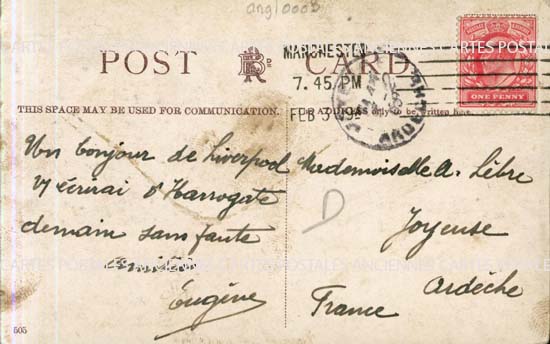 angl0003
POST CARD
MANCHESTER
7.45 PM
FEB 3
ARDECHE
POSTAGE REVENUE
ONE PENNY
THIS SPACE MAY BE USED FOR COMMUNICATION.
THE ADDRESS only to be written here.
Un bonjour de Liverpool
d'Harrogate
demain sans faute
Eugène
Mademoiselle A. Lèbre
Joyeuse
Ardèche
France
D
505
CARTES POSTALES ANCIENNES